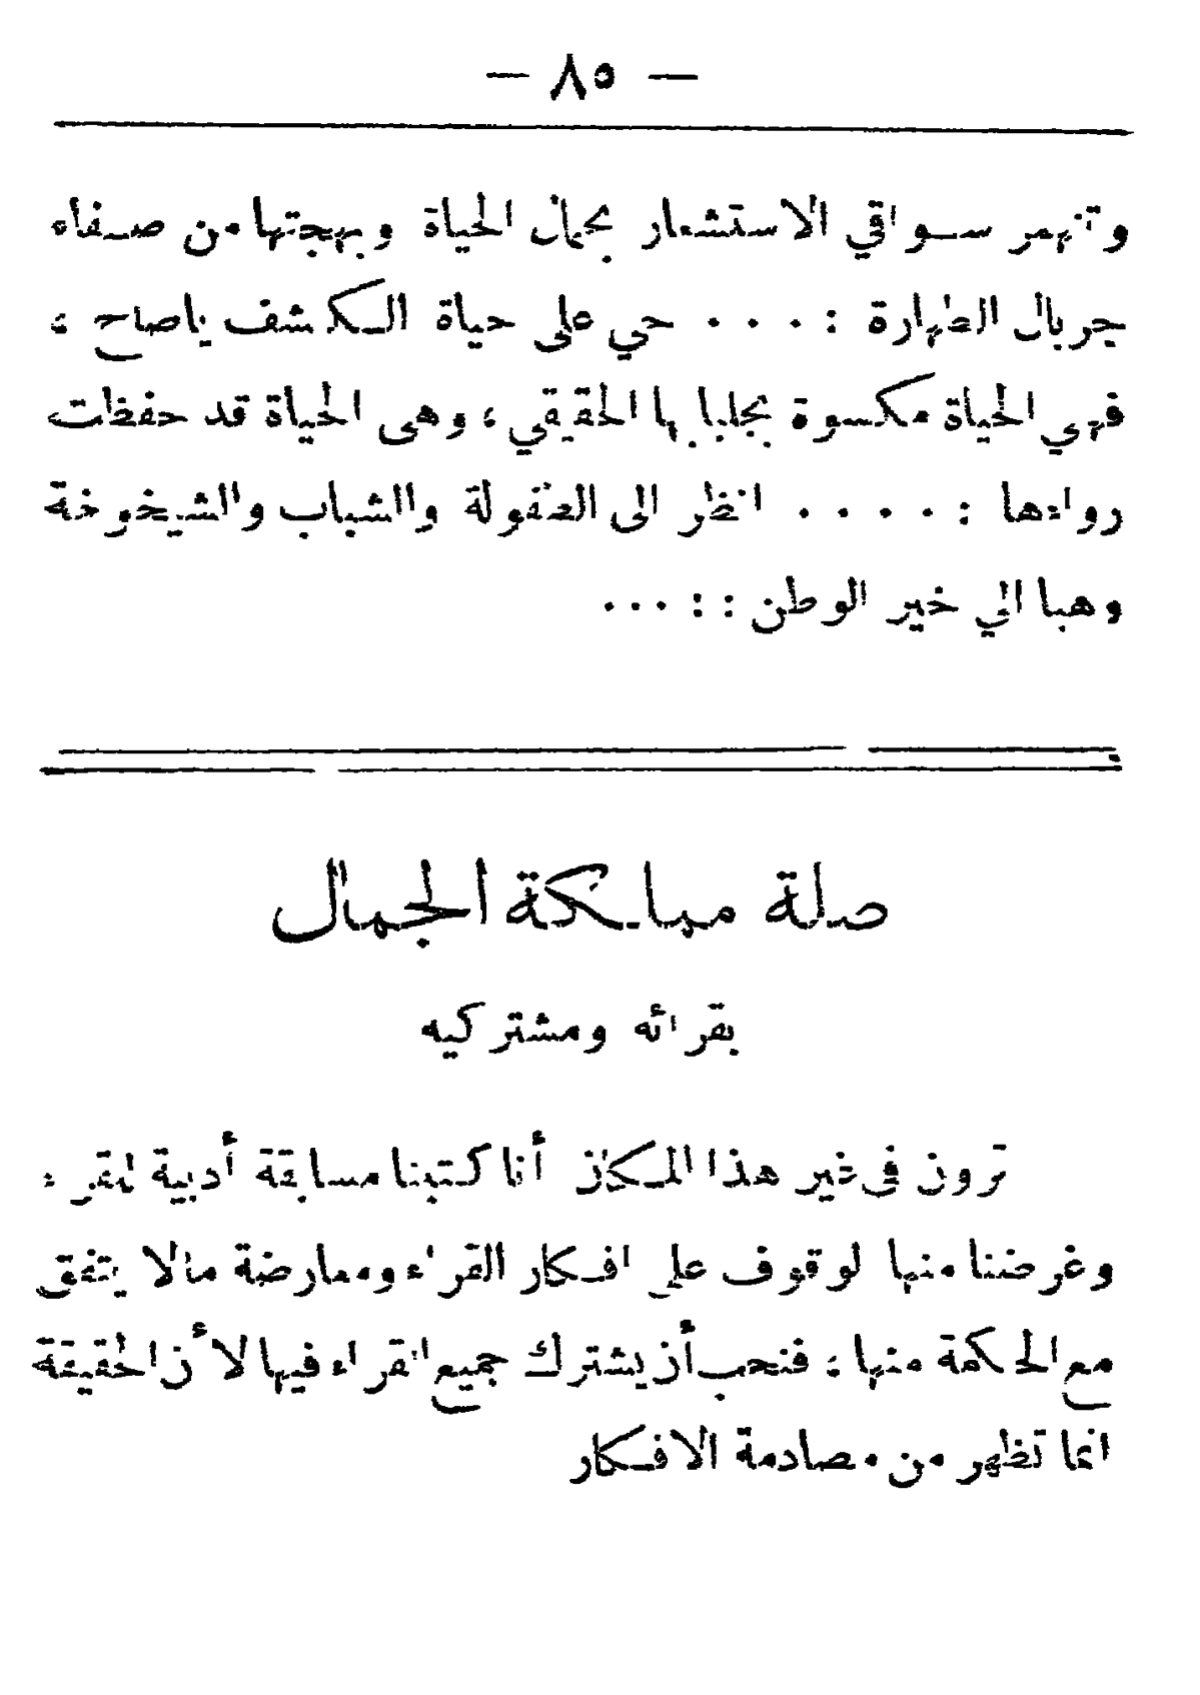 — ٨٥ —
وتنهمر سواقي الاستشعار بجمال الحياة وبهجتها من صفاء
جريال الطهارة : ٠ ٠ ٠ حي على حياة الكشف ياصاح ؛
فهي الحياة مكسوة بجلبابها الحقيقي ، وهى الحياة قد حفظت
رواءها : ٠ ٠ ٠ ٠ انظر الى الطفولة والشباب والشيخوخة
وهبا الي خير الوطن : : ٠٠٠
صلة مملكة الجمال
بقرائه ومشتركيه
ترون في غير هذا المكان أنا كتبنا مسابقة أدبية للقراء
وغرضنا منها لوقوف على افكار القراء ومعارضة مالا يتفق
مع الحكمة منها ؛ فنحب أن يشترك جميع القراء فيها لأن الحقيقة
انما تظهر من مصادمة الافكار